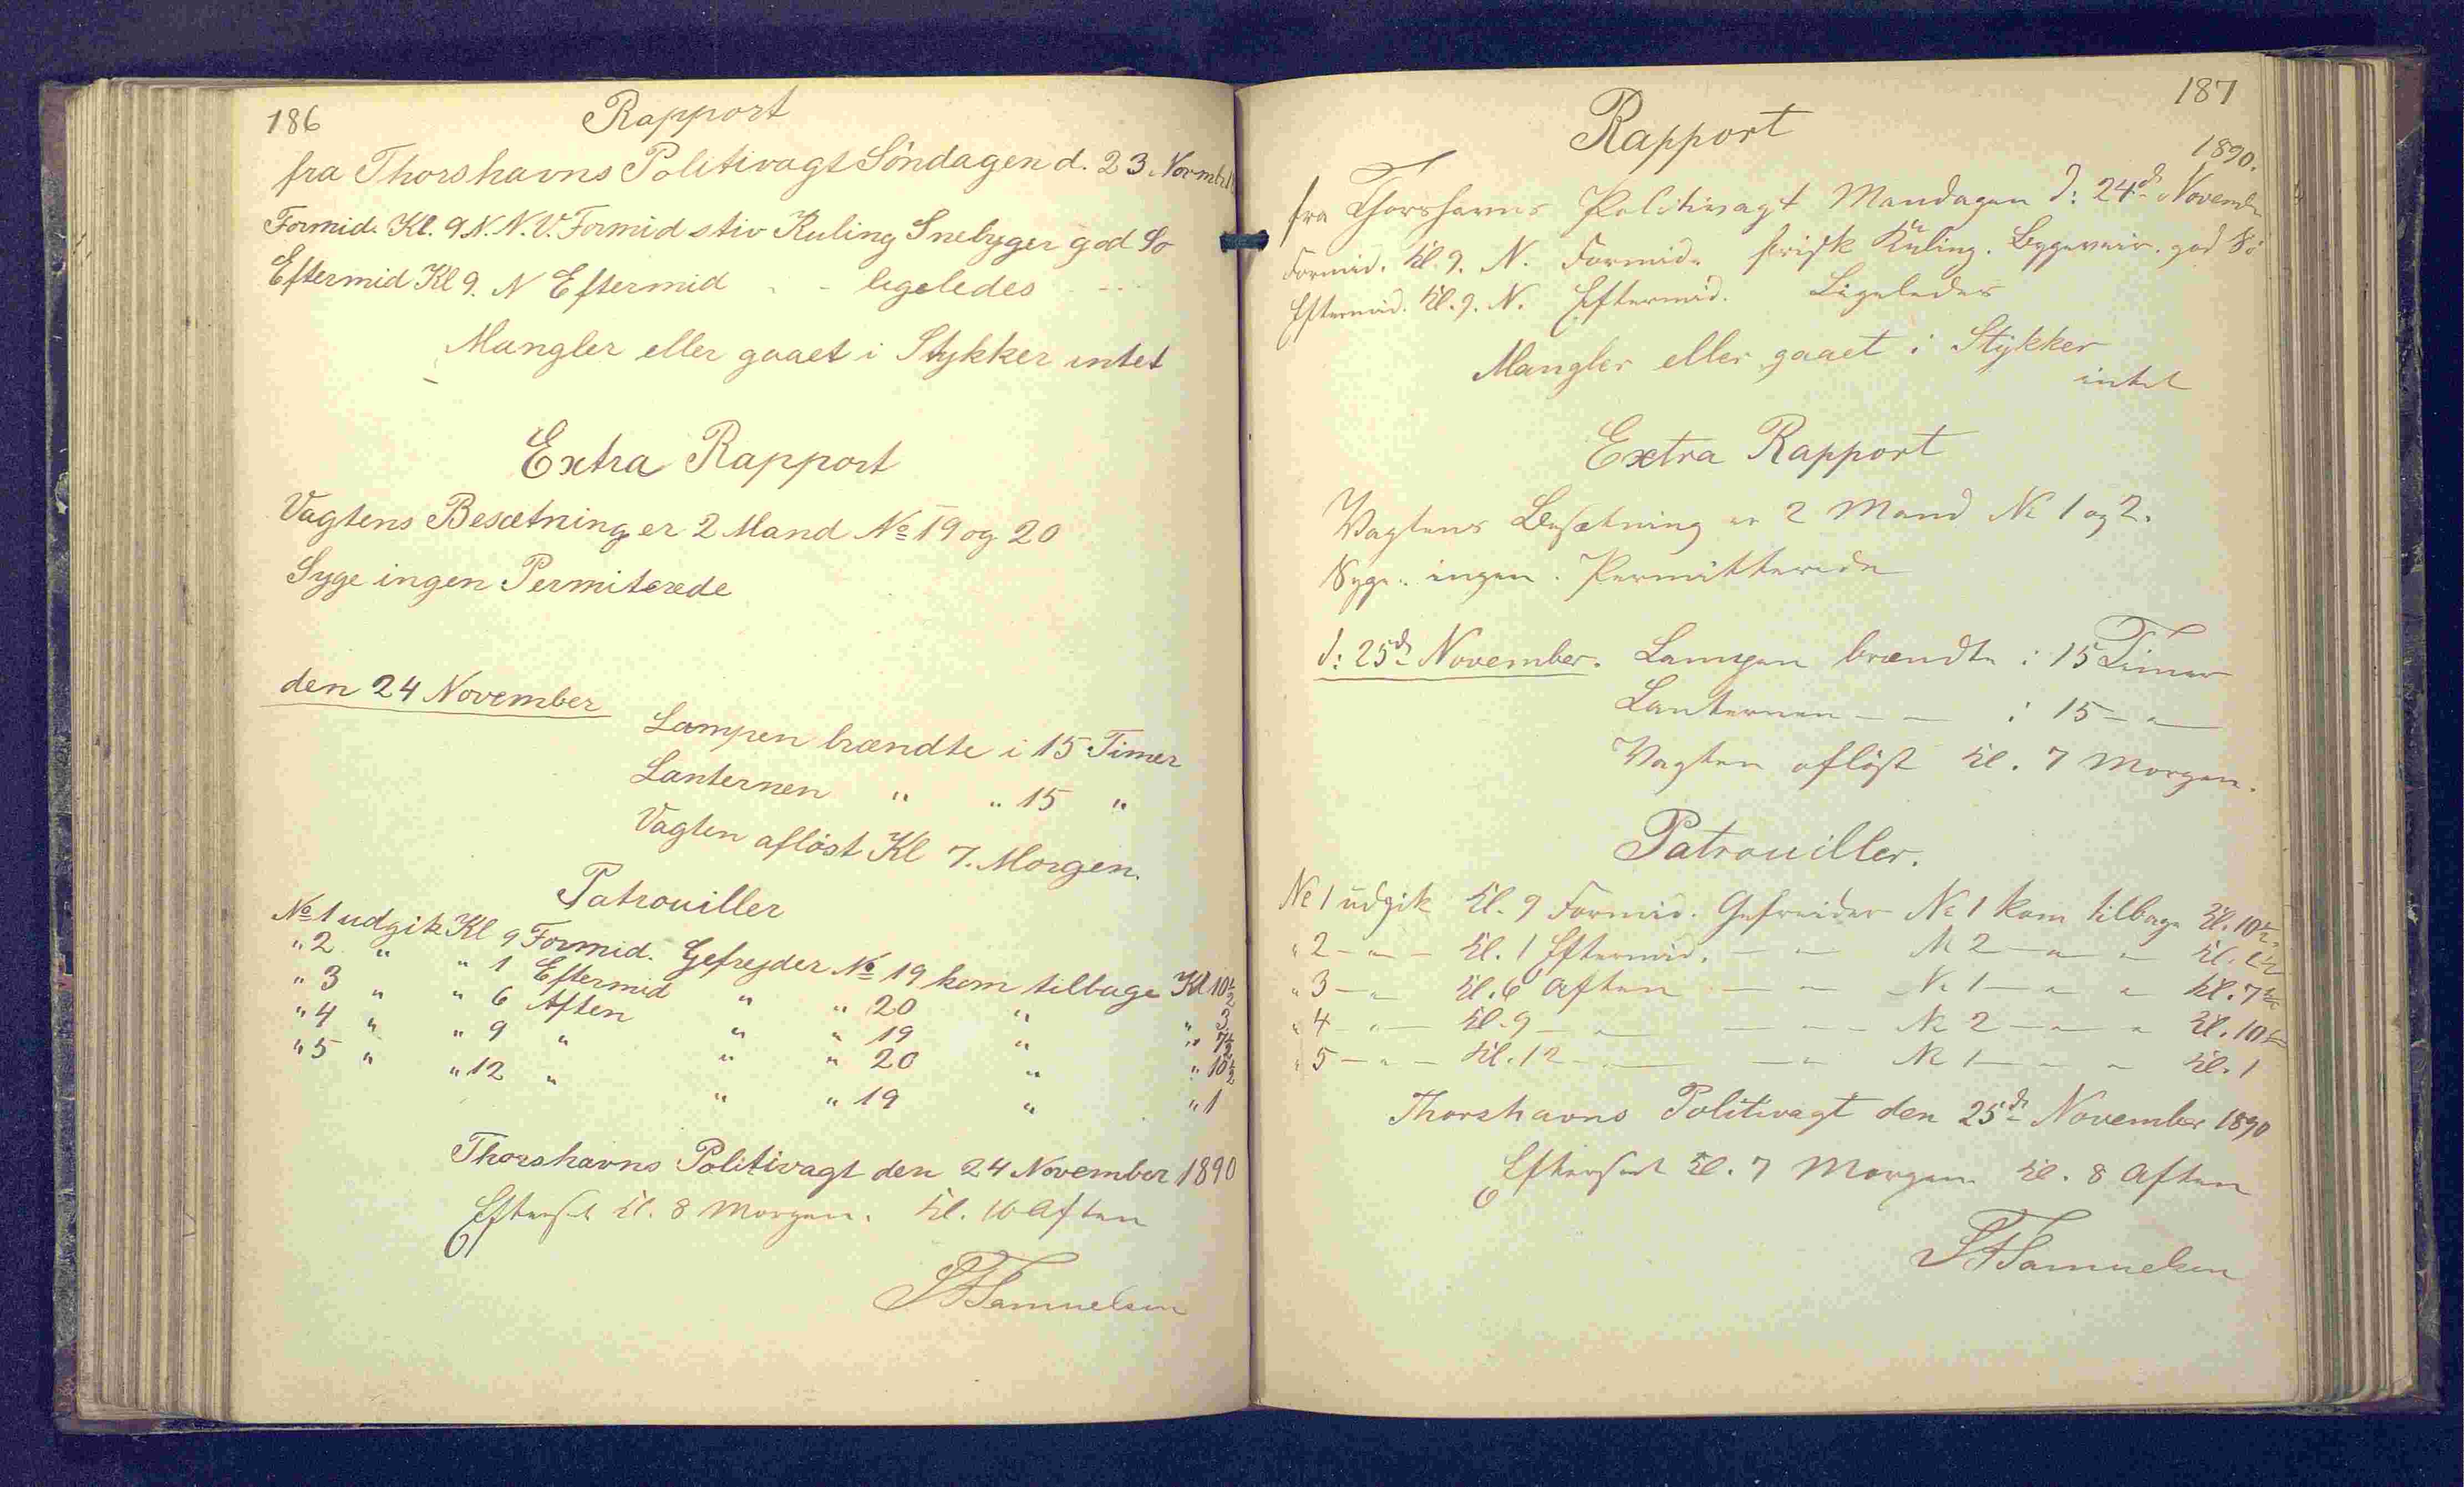 186
Rapport
fra Thorshavns Politivagt Søndagen d. 23 Novmbr
Formid. Kl. 9 N.N.V. Formid stiv Kuling Snebyger god So
Eftermid Kl 9. N Eftermid " " ligeledes
Mangler eller gaaet i Stykker intet
Extra Rapport
Vagtens Besætning er 2 Mand No 19 og 20
Syge ingen Permiterede
den 24 November
Lampen brændte i 15 Timer
Lanternen " " 15 "
Vagten afløst Kl 7. Morgen.
Patrouiller
No 1 udgik Kl 9 Formid. Gefrejder No 19 kom tilbage Kl 10½
" 2 " " 1 Eftermid " " 20 " " 3
" 3 " " 6 Aften " " 19 " " 7½
" 4 " " 9 " " " 20 " " 10½
" 5 " " 12 " " " 19 " " 1
Thorshavns Politivagt den 24 November 1890
Efterset Kl. 8 Morgen. Kl. 10 Aften
Samuelsen
187
Rapport
1890.
fra Thorshavns Politivagt Mandagen d: 24de Novemb
Formid. Kl. 9. N. Formid. frisk Kuling. Bygeveir. god Sö
Eftermid. Kl. 9. N. Eftermid. Ligeledes
Mangler eller gaaet i Stykker
intet
Extra Rapport
Vagtens Besætning er 2 Mand No 1 og 2.
Syge: ingen. Permitterede
d: 25de November. Lampen brændte i 15 Timer
Lanternen — — i 15 — " —
Vagten afløst Kl. 7 Morgen.
Patrouiller.
No 1 udgik Kl. 9 Formid. Gefreider No 1 kom tilbage Kl. 10½
" 2 — " — Kl. 1 Eftermid. — " — No 2 — " — " Kl. 2½
" 3 — " Kl. 6 Aften — " — No 1 — " — " Kl. 7½
" 4 — " — Kl. 9 — " — " — No 2 — " — " Kl. 10½
" 5 — " — Kl. 12 — " — " No 1 — " — " Kl. 1
Thorshavns Politivagt den 25de November 1890
Efterset Kl. 7 Morgen Kl. 8 Aften
Samuelsen